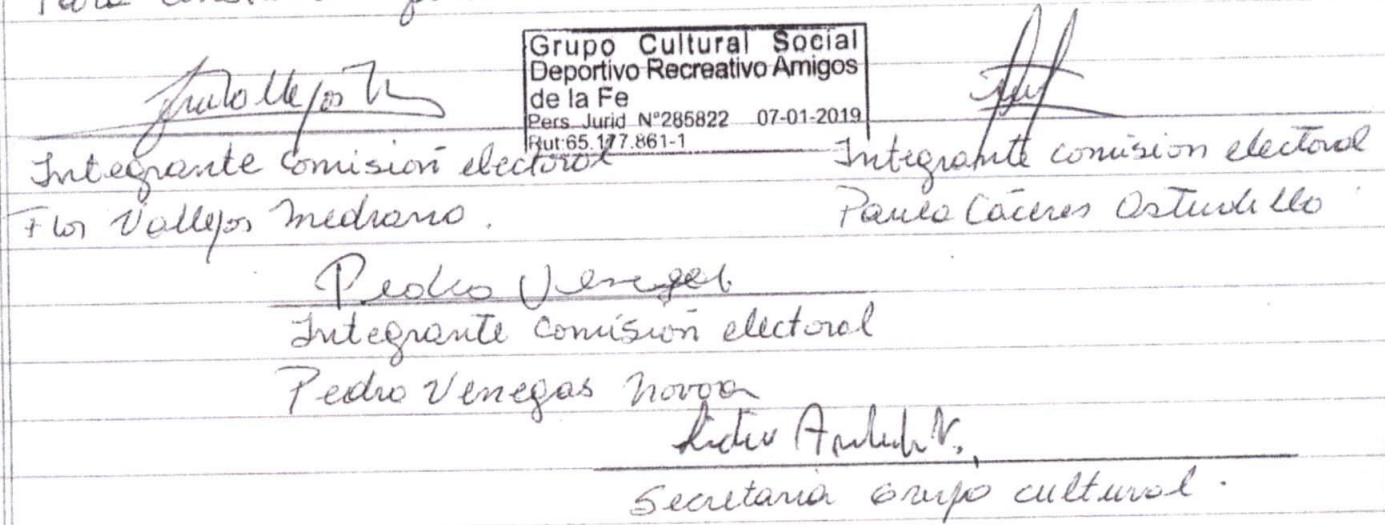 Grupo Cultural Social
Deportivo Recreativo Amigos
de la Fe
Pers. Jurid N°285822 07-01-2019
Rut:65.177.861-1
Integrante comisión electoral
Flor Vallejos Medrano.
Integrante comision electoral
Paula Cáceres Astudillo
Pedro Venegas
Integrante comisión electoral
Pedro Venegas Novoa
Secretaria Grupo cultural.